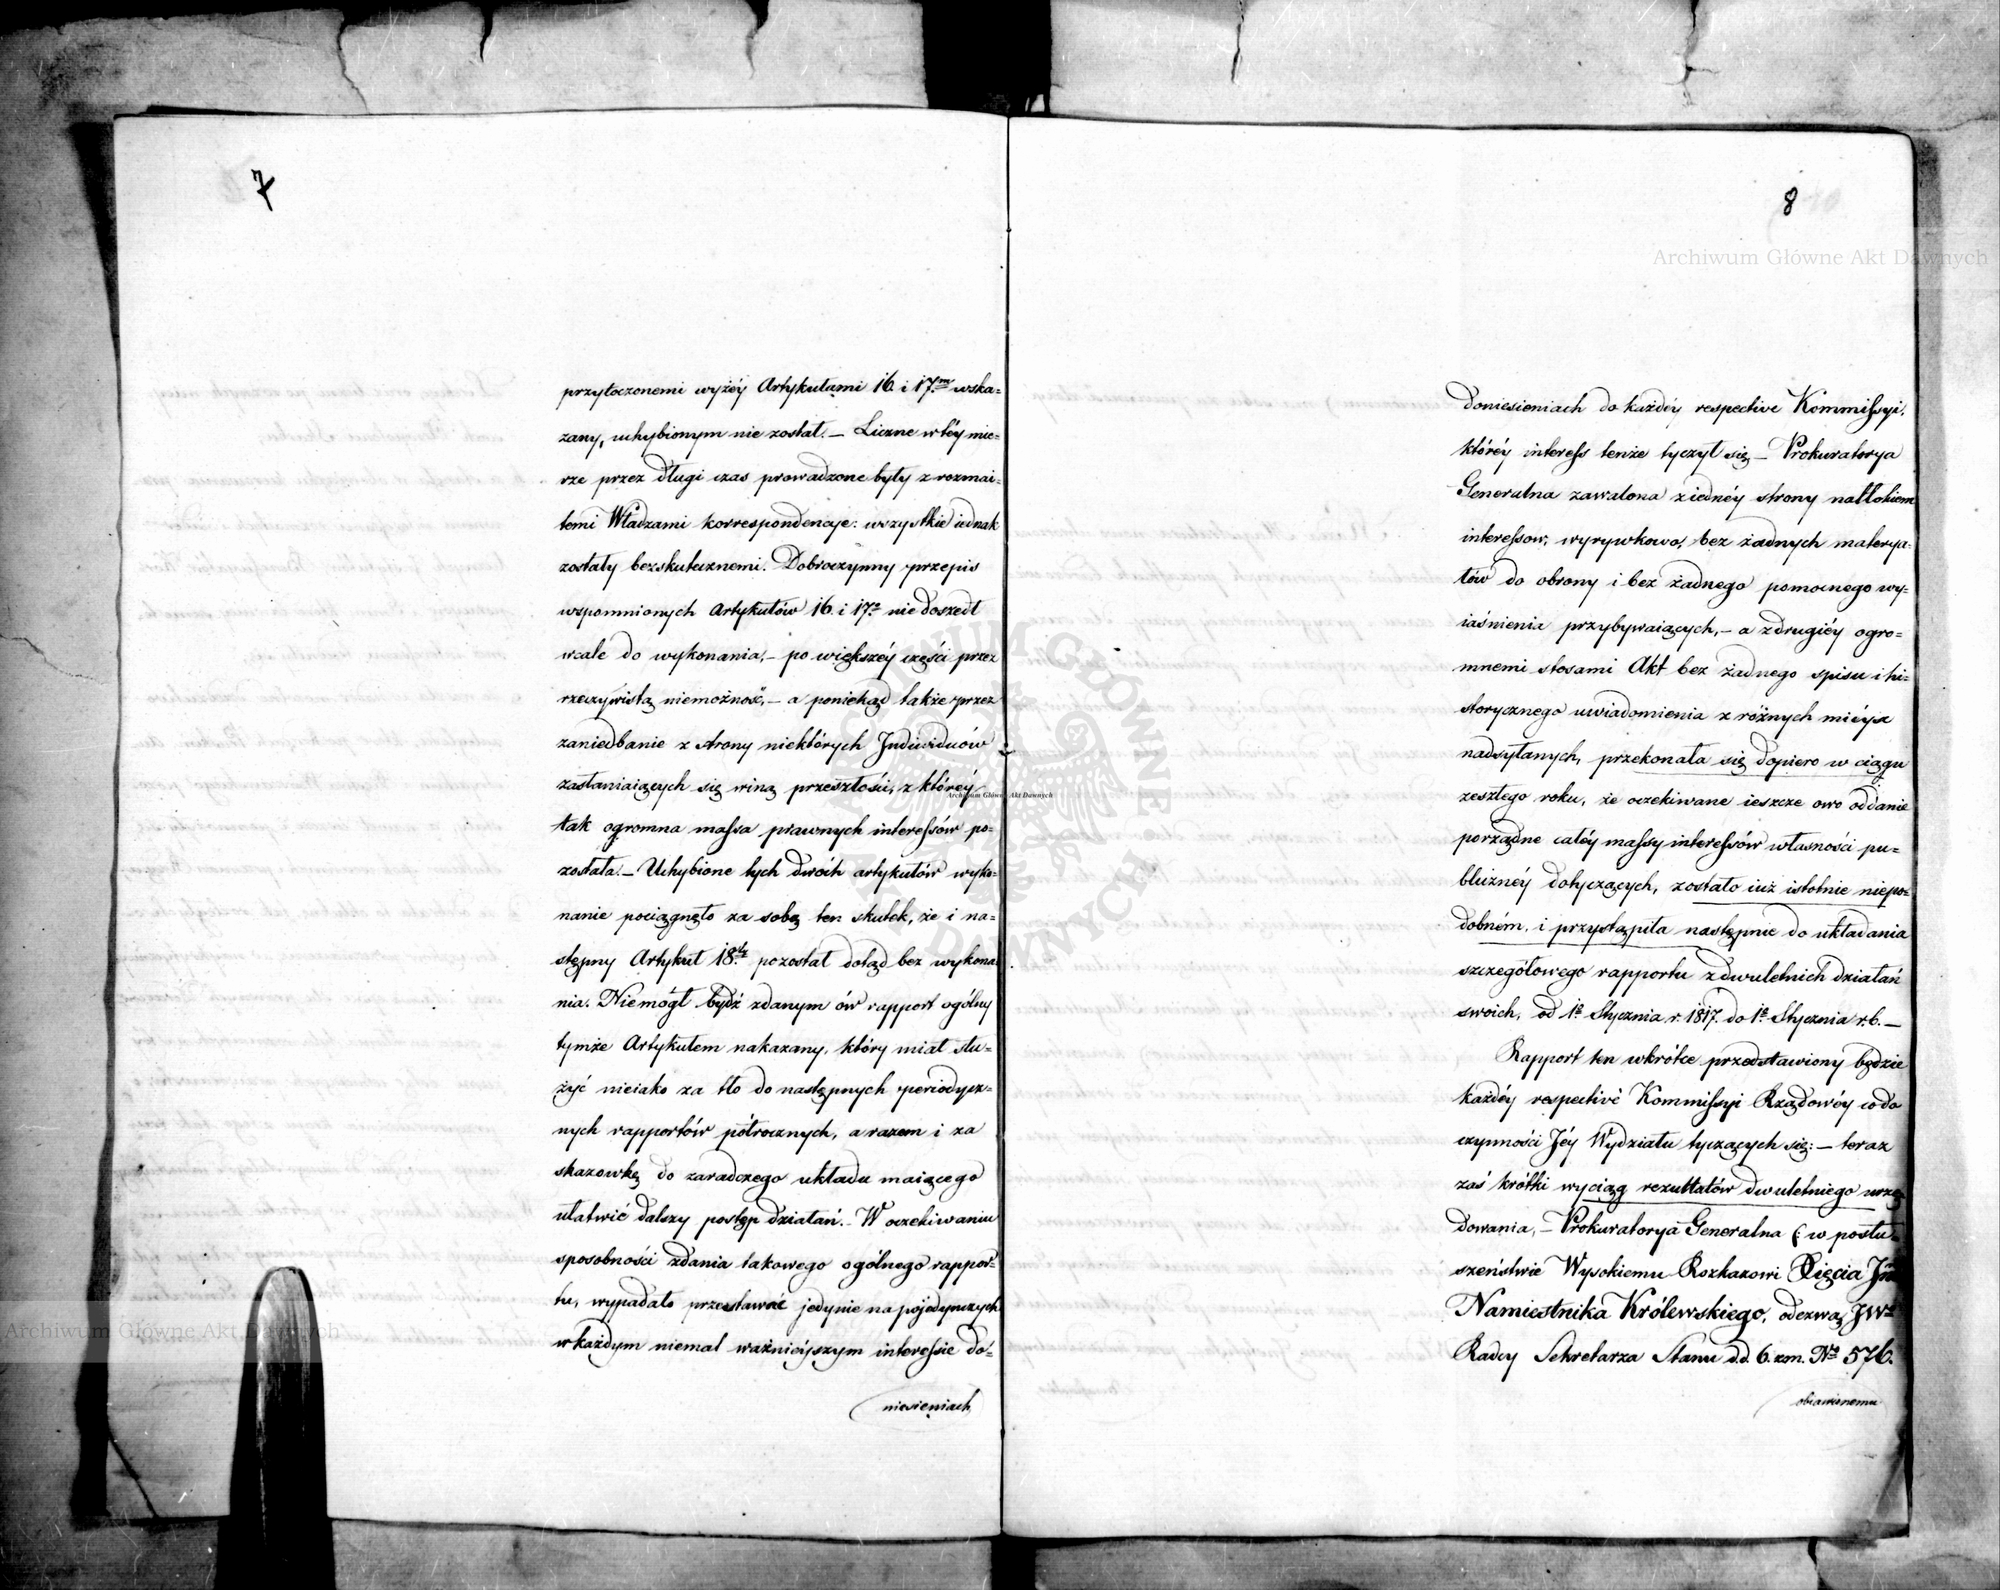 7
przytoczonemi wyżéy Artykułami 16. i 17.m wska=
zany, uchybionym nie został. — Liczne w téy mie=
rze przez długi czas prowadzone były z rozmai=
temi Władzami korrespondencye: wszystkie iednak
zostały bezskutecznemi. Dobroczynny przepis
wspomnionych Artykułów 16. i 17.o nie doszedł
wcale do wykonania, — po większéy części przez
rzeczywistą niemożność, — a poniekąd także przez
zaniedbanie z strony niektórych Indiwiduów
zasłaniaiących się winą przeszłości, z któréy
tak ogromna massa prawnych interessów po=
została. — Uchybione tych dwóch artykułów wyko=
nanie pociągnęło za sobą ten skutek, że i na=
stępny Artykuł 18.ty pozostał dotąd bez wykona
nia. Niemógł bydź zdanym ów rapport ogólny
tymże Artykułem nakazany, który miał słu=
żyć nieiako za tło do następnych periodycz=
nych rapportów półrocznych, a razem i za
skazowkę do zaradczego układu maiącego
ułatwić dalszy postęp działań. — W oczekiwaniu
sposobności zdania takowego ogólnego rappor=
tu, wypadało przestawać jedynie na pojedynczych
w każdym niemal ważnieyszym interessie do=
niesieniach
8
Archiwum Główne Akt Dawnych
doniesieniach do każdéy respective Kommissyi,
któréy interess tenże tyczył się — Prokuratorya
Generalna zawalona z iednéy strony natłokiem
interessow, wyrywkowo, bez żadnych materya=
łów do obrony i bez żadnego pomocnego wy=
iaśnienia przybywaiących, — a z drugiéy ogro=
mnemi stosami Akt bez żadnego spisu i hi=
storycznego uwiadomienia z różnych mieysc
nadsyłanych, przekonała się dopiero w ciągu
zeszłego roku, że oczekiwane ieszcze owo oddanie
porządne całéy massy interessów własności pu=
bliczney dotyczących, zostało iuż istotnie niepo=
dobném, i przystąpiła następnie do układania
szczegółowego rapportu z dwuletnich działań
swoich, od 1.o Stycznia r. 1817. do 1.o Stycznia r.b. —
Rapport ten wkrótce przedstawiony będzie
każdéy respectivé Kommissyi Rządowéy co do
czynności Jéy Wydziału tyczących się: — teraz
zaś krótki wyciąg rezultatów dwuletniego urzę
dowania, — Prokuratorya Generalna (: w posłu=
szeństwie Wysokiemu Rozkazowi Xięcia
Namiestnika Królewskiego, odezwą JWo
Radcy Sekretarza Stanu d.d. 6. zm. No 576.
obiawionemu
Archiwum Główne Akt Dawnych
ARCHIWUM GŁÓWNE AKT DAWNYCH
Archiwum Główne Akt Dawnych